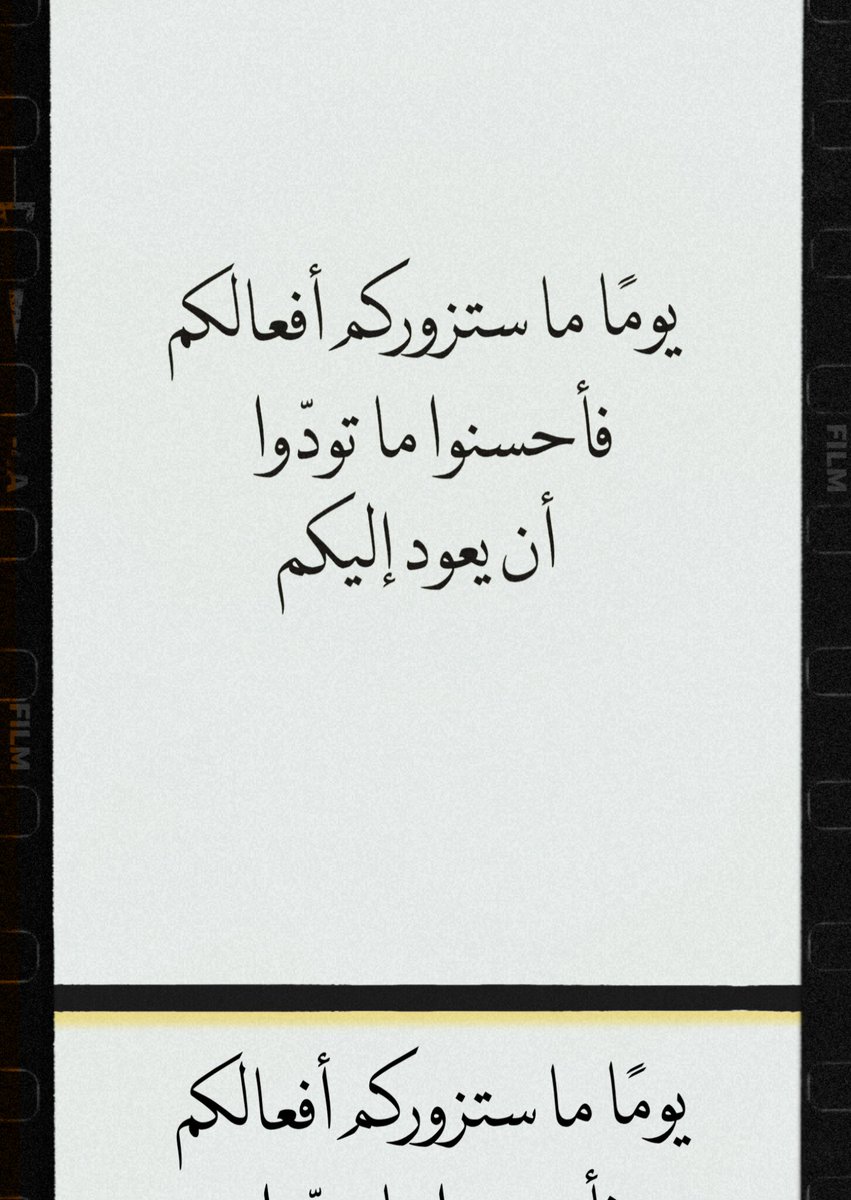 يومًا ما ستزوركم أفعالكم
فأحسنوا ما تودّوا
أن يعود إليكم
يومًا ما ستزوركم أفعالكم
FILM
FILM